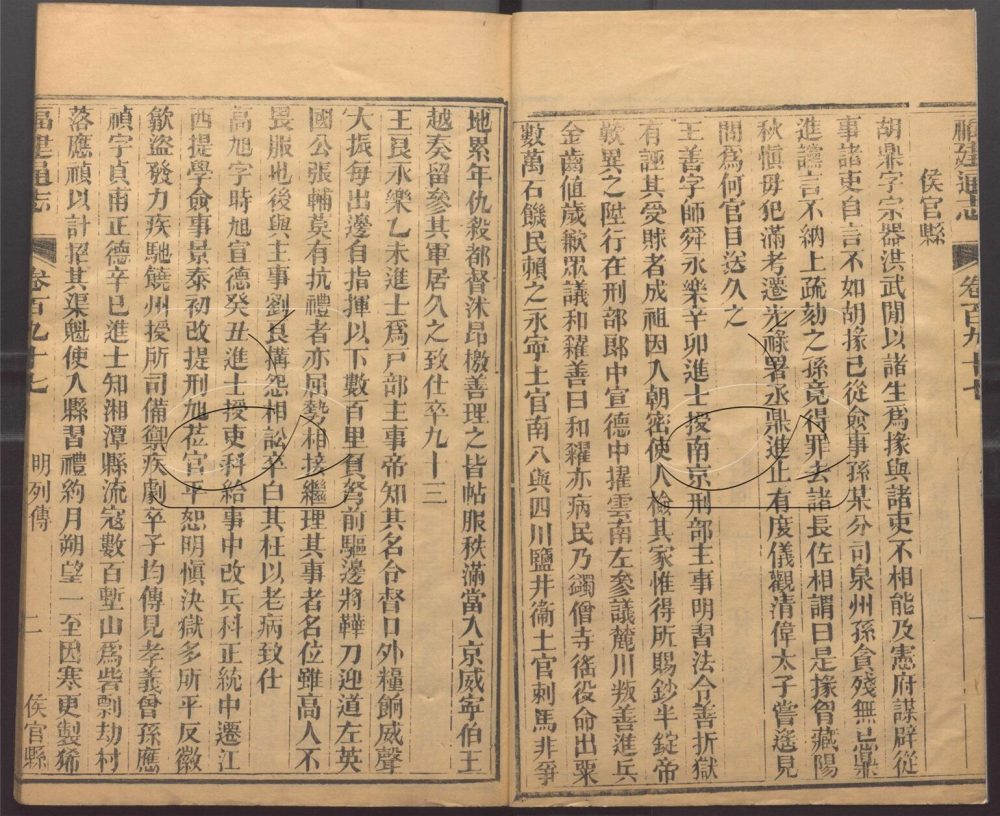 福建通志 卷百九十七 一
侯官縣
胡鼎字宗器洪武間以諸生爲掾與諸吏不相能及憲府謀辟從
事諸吏自言不如胡掾已從僉事孫某分司泉州孫貪殘無忌鼎
進讜言不納上疏劾之孫竟得罪去諸長佐相謂曰是掾胷藏陽
秋愼毋犯滿考遷光祿署丞鼎進止有度儀觀清偉太子嘗遙見
問爲何官目送久之
王善字師舜永樂辛卯進士授南京刑部主事明習法令善折獄
有誣其受賕者成祖因入朝密使人檢其家惟得所賜鈔半錠帝
歎異之陞行在刑部郎中宣德中擢雲南左參議麓川叛善進兵
金齒值歲歉眾議和糴善曰和糴亦病民乃蠲僧寺徭役命出粟
數萬石饑民賴之永寧土官南八與四川鹽井衞土官剌馬非爭
地累年仇殺都督沐昂檄善理之皆帖服秩滿當入京威寧伯王
越奏留參其軍居久之致仕卒九十三
王良永樂乙未進士爲戸部主事帝知其名令督口外糧餉威聲
大振每出邊自指揮以下數百里負弩前驅邊將鞾刀迎道左英
國公張輔莫有抗禮者亦屈勢相接繼理其事者名位雖高人不
畏服也後與主事劉良搆怨相訟卒白其枉以老病致仕
高旭字時旭宣德癸丑進士授吏科給事中改兵科正統中遷江
西提學僉事景泰初改提刑旭莅官平恕明愼決獄多所平反徽
歙盜發力疾馳饒州授所司備禦疾劇卒子均傳見孝義曾孫應
禎字貞南正德辛巳進士知湘潭縣流寇數百塹山爲砦剽劫村
落應禎以計招其渠魁使入縣習禮約月朔望一至因寒更製狶
福建通志 卷百九十七 明列傳 二 侯官縣